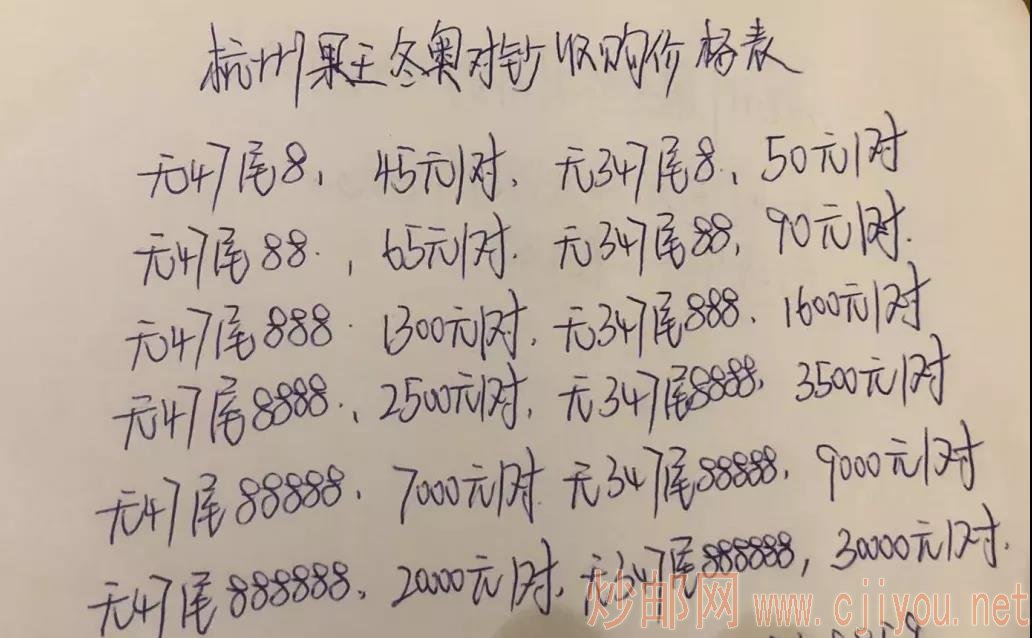 杭州果王冬奥对钞收购价格表
无47尾8、45元/对、无347尾8、50元/对
无47尾88、65元/对、无347尾88、90元/对.
无47尾888、1300元/对、无347尾888、1600元/对
无47尾8888、2500元/对、无347尾8888、3500元/对
无47尾88888、7000元/对 无347尾88888、9000元/对
无47尾888888、20000元/对、无347尾888888，30000元/对.
炒邮网 www.cjiyou.net